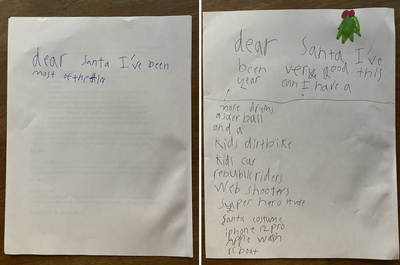 dear Santa I've been
most of the
dear Santa, I've
been very good this
year can I have a
more drums
a socer ball
and a
Kids dirtbike
kids car
Web shooters
Super hero
Santa costume
iphone 12 pro
apple wash
rc boat